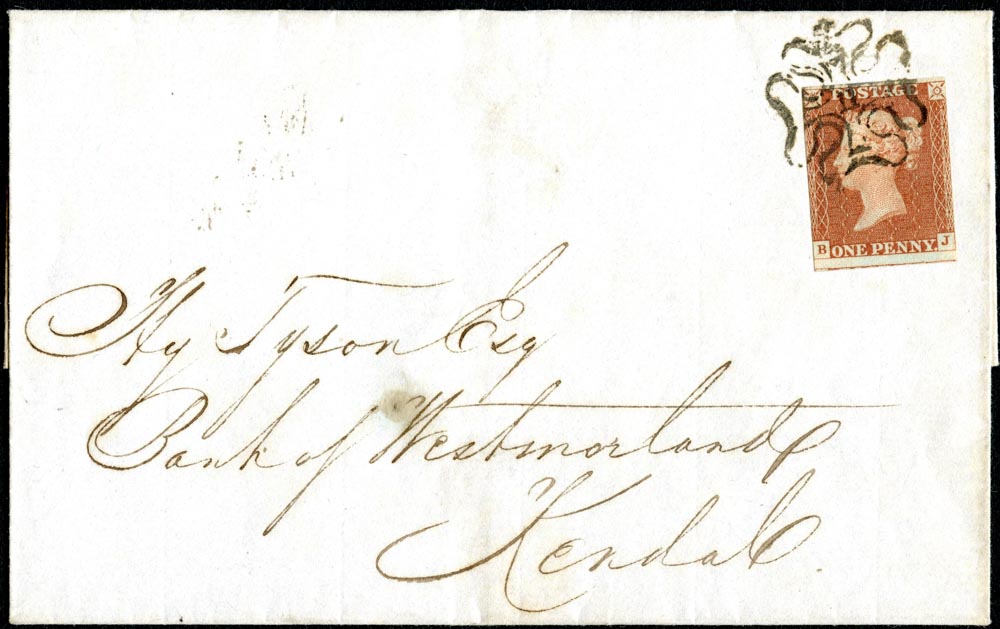 POSTAGE
B ONE PENNY. J
Hy Tyson Esq
Bank of Westmorland
Kendal.